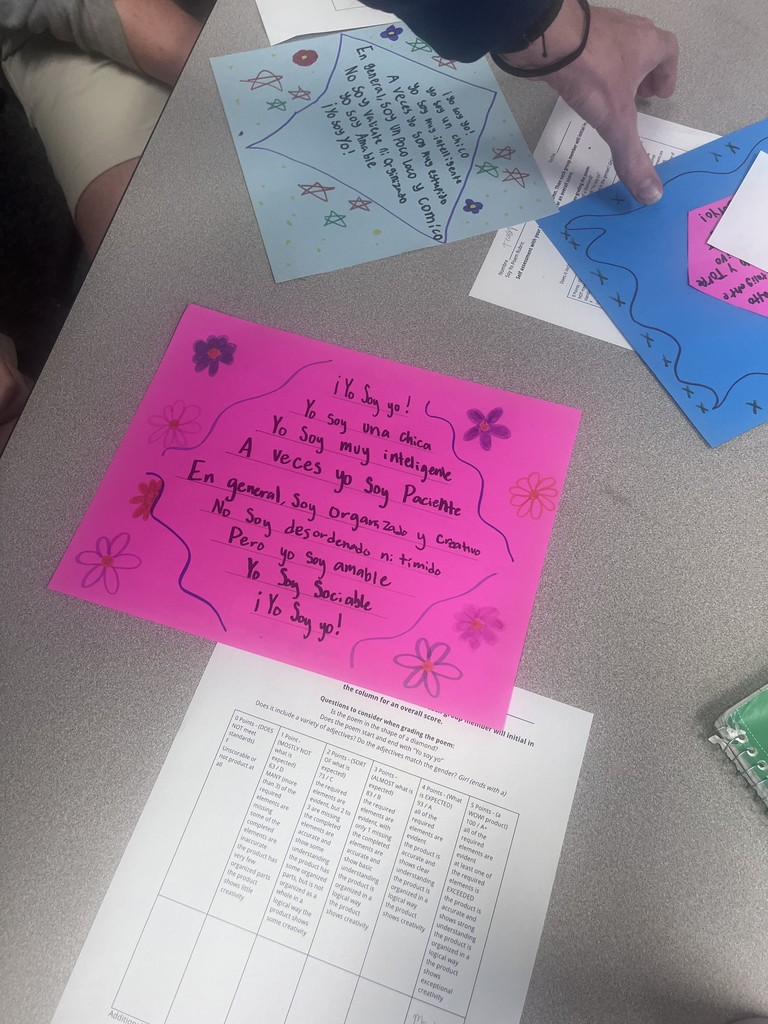 ¡Yo soy yo!
yo soy un chico
yo soy muy inteligente
A veces yo soy muy
En general, soy un poco loco y comico
No soy valiente ni
yo soy Amable
¡Yo soy Yo!
Nombre
Soy Yo Poem Rubric
Self assessment with your
Yo!
Y TOFFE
¡Yo Soy yo!
Yo soy una chica
Yo Soy muy inteligente
A veces yo soy Paciente
En general, Soy organizado y creativo
No Soy desordenado ni tímido
Pero yo soy amable
Yo Soy Sociable
¡Yo Soy yo!
group member will initial in
the column for an overall score.
Questions to consider when grading the poem:
Is the poem in the shape of a diamond?
Does the poem start and end with "Yo soy yo"
Does it include a variety of adjectives? Do the adjectives match the gender? Girl (ends with a)
0 Points - (DOES
NOT meet
standards)
Unscorable or
not product at
all
1 Point -
(MOSTLY NOT
what is
expected)
63 / D
MANY (more
than 3) of the
required
elements are
missing
some of the
completed
elements are
inaccurate
the product has
very few
organized parts
the product
shows little
creativity
2 Points - (SORT
OF what is
expected)
73 / C
the required
elements are
evident, but 2 to
3 are missing
the completed
elements are
accurate and
show some
understanding
the product has
some organized
parts, but is not
organized as a
whole in a
logical way the
product shows
some creativity
3 Points -
(ALMOST what is
expected)
83 / B
the required
elements are
evident, with
only 1 missing
the completed
elements are
accurate and
show basic
understanding
the product is
organized in a
logical way
the product
shows creativity
4 Points - (What
is EXPECTED)
93 / A
all of the
required
elements are
evident
the product is
accurate and
shows clear
understanding
the product is
organized in a
logical way
the product
shows creativity
5 Points - (a
WOW! product)
100 / A+
all of the
required
elements are
evident
at least one of
the required
elements is
EXCEEDED
the product is
accurate and
shows strong
understanding
the product is
organized in a
logical way
the product
shows
exceptional
creativity